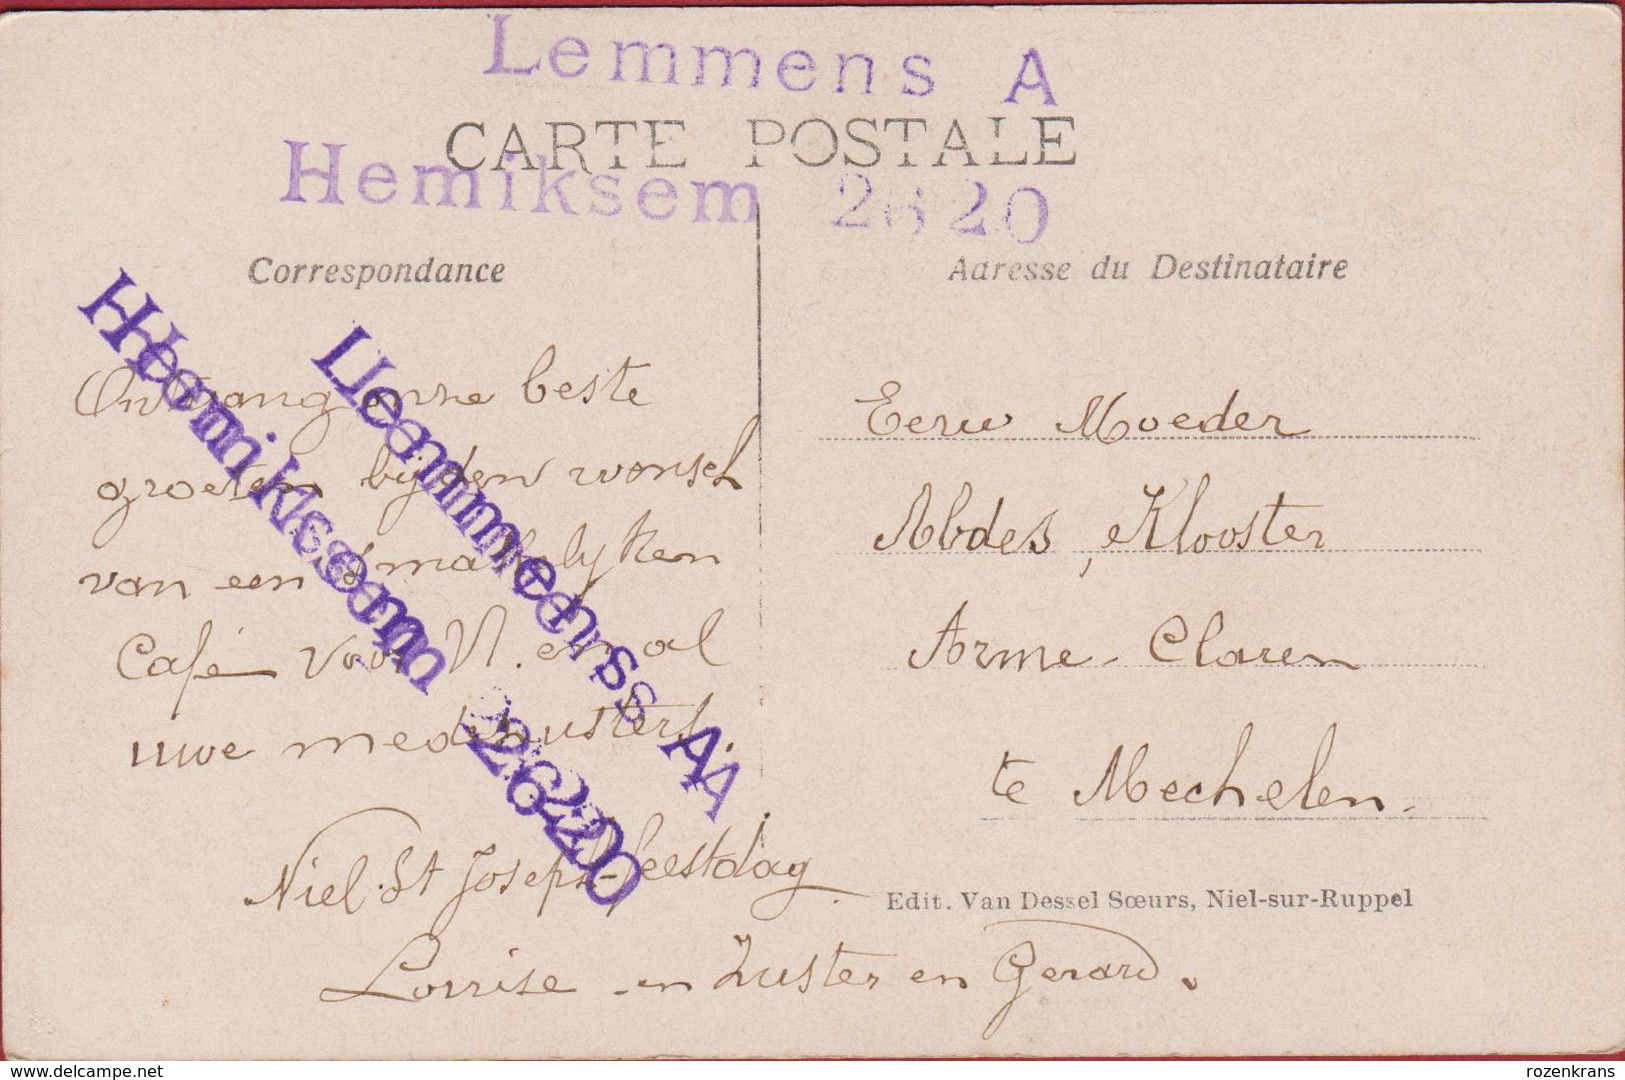 Lemmens A
CARTE POSTALE
Hemiksem 2620
Correspondance
Adresse du Destinataire
Hemiksem 2620
Lemmens A
Ontvang onze beste
groeten bij den wensch
van een smakelijken
Café voor U. en al
uwe medezusters.
Niel St Joseph-feestdag.
Lorrise en Zuster en Gerard.
Eerw Moeder
Abdes, Klooster
Arme-Claren
te Mechelen.
Edit. Van Dessel Sœurs, Niel-sur-Ruppel
delcampe.net
rozenkrans